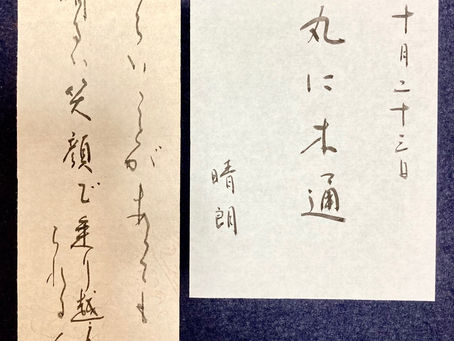 十月二十三日
丸に木通
晴朗
らいことがあっても
るい笑顔で乗り越え
られる